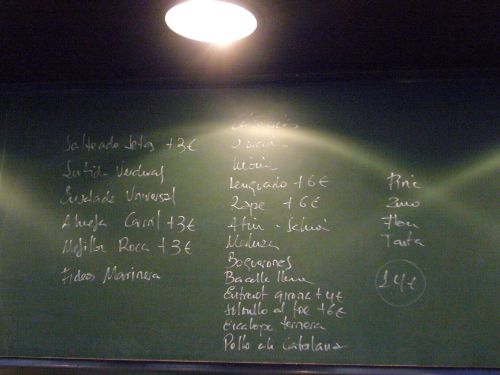 Salteado Setas +3€
Surtido Verduras
Ensalada Universal
Almeja Carril +3€
Mejillon Roca +3€
Fideos Marinera
Lenguado +6€
Rape +6€
Atun - Salmon
Merluza
Boquerones
Bacalla llauna
Entrecot girona +4€
Solomillo al foie +6€
Escalope ternera
Pollo a la Catalana
Piña
Zumo
Flan
Tarta
24€